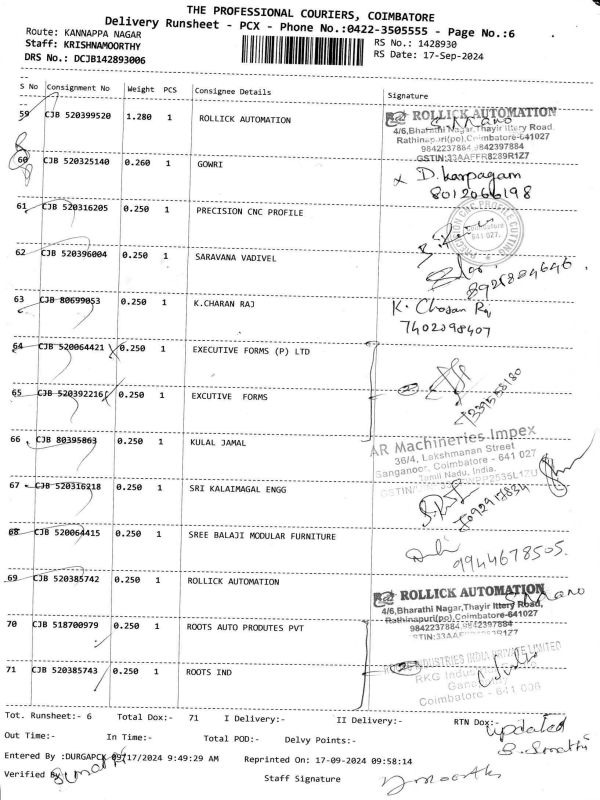 THE PROFESSIONAL COURIERS, COIMBATORE
Delivery Runsheet - PCX - Phone No.:0422-3505555 - Page No.:6
Route: KANNAPPA NAGAR
RS No.: 1428930
Staff: KRISHNAMOORTHY
RS Date: 17-Sep-2024
DRS No.: DCJB142893006
S No Consignment No Weight PCS Consignee Details Signature
59 CJB 520399520 1.280 1 ROLLICK AUTOMATION
ROLLICK AUTOMATION
S. Mano
4/6,Bharathi Nagar,Thayir Ittery Road,
Rathinapuri(po),Coimbatore-641027
9842237884 9842397884
GSTIN:33AAFFR8289R1Z7
60 CJB 520325140 0.260 1 GOWRI
x D. karpagam
8012066198
61 CJB 520316205 0.250 1 PRECISION CNC PROFILE
PRECISION CNC PROFILE CUTTING
Coimbatore
641 027.
62 CJB 520396004 0.250 1 SARAVANA VADIVEL
8925824646.
63 CJB 80699053 0.250 1 K.CHARAN RAJ
K. Charan Raj
7402298407
64 CJB 520064421 0.250 1 EXECUTIVE FORMS (P) LTD
2
65 CJB 520392216 0.250 1 EXCUTIVE FORMS
66 CJB 80395863 0.250 1 KULAL JAMAL
AR Machineries Impex
36/4, Lakshmanan Street
Ganganoor, Coimbatore - 641 027
Tamil Nadu, India.
67 CJB 520316218 0.250 1 SRI KALAIMAGAL ENGG
68 CJB 520064415 0.250 1 SREE BALAJI MODULAR FURNITURE
9944678505.
69 CJB 520385742 0.250 1 ROLLICK AUTOMATION
ROLLICK AUTOMATION
S. Mano
4/6,Bharathi Nagar,Thayir Ittery Road,
Rathinapuri(po),Coimbatore-641027
9842237884 9842397884
70 CJB 518700979 0.250 1 ROOTS AUTO PRODUTES PVT
INDUSTRIES INDIA PRIVATE LIMITED
2
RKG Indus
71 CJB 520385743 0.250 1 ROOTS IND
Coimbatore - 641 006
Tot. Runsheet:- 6 Total Dox:- 71 I Delivery:- II Delivery:- RTN Dox:-
updated
Out Time:- In Time:- Total POD:- Delvy Points:-
Entered By :DURGAPCK 09/17/2024 9:49:29 AM Reprinted On: 17-09-2024 09:58:14
Verified By:
Staff Signature